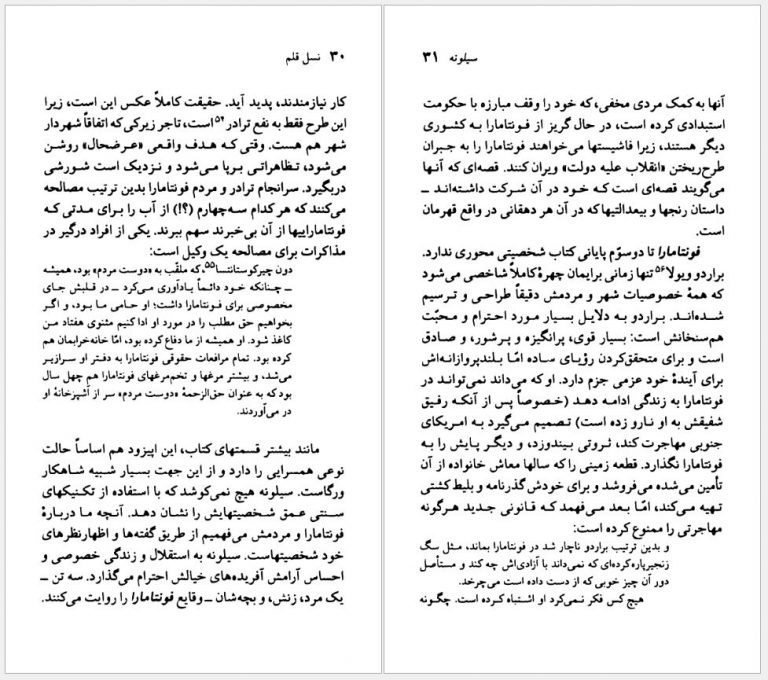 ۳۰ نسل قلم
کار نیازمندند، پدید آید. حقیقت کاملاً عکس این است، زیرا
این طرح فقط به نفع ترادر۵۴ است، تاجر زیرکی که اتفاقاً شهردار
شهر هم هست. وقتی که هدف واقعی «عرضحال» روشن
می‌شود، تظاهراتی برپا می‌شود و نزدیک است شورشی
دربگیرد. سرانجام ترادر و مردم فونتامارا بدین ترتیب مصالحه
می‌کنند که هر کدام سه‌چهارم (؟!) از آب را برای مدتی که
فونتاماراییها از آن بی‌خبرند سهم ببرند. یکی از افراد درگیر در
مذاکرات برای مصالحه یک وکیل است:
دون چیرکوستانتسا۵۵، که ملقّب به «دوست مردم» بود، همیشه
ــ چنانکه خود دائماً یادآوری می‌کرد ــ در قلبش جای
مخصوصی برای فونتامارا داشت؛ او حامی ما بود، و اگر
بخواهیم حق مطلب را در مورد او ادا کنیم مثنوی هفتاد من
کاغذ شود. او همیشه از ما دفاع کرده بود، امّا خانه‌خرابمان هم
کرده بود. تمام مرافعات حقوقی فونتامارا به دفتر او سرازیر
می‌شد، و بیشتر مرغها و تخم‌مرغهای فونتامارا هم چهل سال
بود که به عنوان حق‌الزحمهٔ «دوست مردم» سر از آشپزخانهٔ او
در می‌آوردند.
مانند بیشتر قسمتهای کتاب، این اپیزود هم اساساً حالت
نوعی همسرایی را دارد و از این جهت بسیار شبیه شاهکار
ورگاست. سیلونه هیچ نمی‌کوشد که با استفاده از تکنیکهای
سنتی عمق شخصیتهایش را نشان دهد. آنچه ما دربارهٔ
فونتامارا و مردمش می‌فهمیم از طریق گفته‌ها و اظهارنظرهای
خود شخصیتهاست. سیلونه به استقلال و زندگی خصوصی و
احساس آرامش آفریده‌های خیالش احترام می‌گذارد. سه تن ــ
یک مرد، زنش، و بچه‌شان ــ وقایع فونتامارا را روایت می‌کنند.
سیلونه ۳۱
آنها به کمک مردی مخفی، که خود را وقف مبارزه با حکومت
استبدادی کرده است، در حال گریز از فونتامارا به کشوری
دیگر هستند، زیرا فاشیستها می‌خواهند فونتامارا را به جبران
طرح‌ریختن «انقلاب علیه دولت» ویران کنند. قصه‌ای که آنها
می‌گویند قصه‌ای است که خود در آن شرکت داشته‌اند ــ
داستان رنجها و بیعدالتیها که در آن هر دهقانی در واقع قهرمان
است.
فونتامارا تا دوسوّم پایانی کتاب شخصیتی محوری ندارد.
براردو ویولا۵۶ تنها زمانی برایمان چهرهٔ کاملاً شاخصی می‌شود
که همهٔ خصوصیات شهر و مردمش دقیقاً طراحی و ترسیم
شده‌اند. براردو به دلایل بسیار مورد احترام و محبّت
هم‌سنخانش است: بسیار قوی، پرانگیزه و پرشور، و صادق
است و برای متحقق‌کردن رؤیای ساده امّا بلندپروازانه‌اش
برای آیندهٔ خود عزمی جزم دارد. او که می‌داند نمی‌تواند در
فونتامارا به زندگی ادامه دهد (خصوصاً پس از آنکه رفیق
شفیقش به او نارو زده است) تصمیم می‌گیرد به امریکای
جنوبی مهاجرت کند، ثروتی بیندوزد، و دیگر پایش را به
فونتامارا نگذارد. قطعه زمینی را که سالها معاش خانواده از آن
تأمین می‌شده می‌فروشد و برای خودش گذرنامه و بلیط کشتی
تهیه می‌کند، امّا بعد می‌فهمد که قانونی جدید هرگونه
مهاجرتی را ممنوع کرده است:
و بدین ترتیب براردو ناچار شد در فونتامارا بماند، مثل سگ
زنجیرپاره‌کرده‌ای که نمی‌داند با آزادی‌اش چه کند و مستأصل
دور آن چیز خوبی که از دست داده است می‌چرخد.
هیچ کس فکر نمی‌کرد او اشتباه کرده است. چگونه